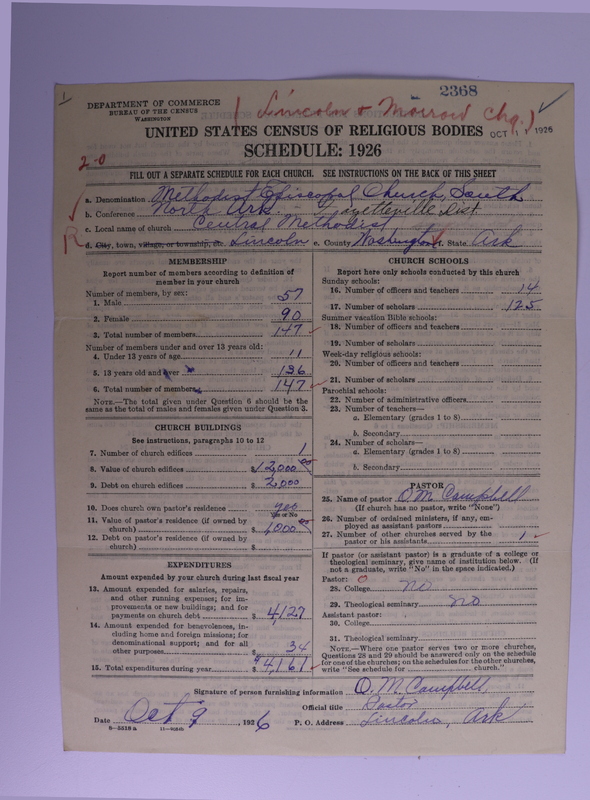 1
2368
DEPARTMENT OF COMMERCE
BUREAU OF THE CENSUS
WASHINGTON
( Lincoln & Morrow Chg. )
UNITED STATES CENSUS OF RELIGIOUS BODIES
OCT 11 1926
SCHEDULE: 1926
2-0
FILL OUT A SEPARATE SCHEDULE FOR EACH CHURCH. SEE INSTRUCTIONS ON THE BACK OF THIS SHEET
a. Denomination Methodist Episcopal Church, South
b. Conference North Ark. - Fayetteville Dist.
c. Local name of church Central Methodist
R
d. City, town, village, or township, etc. Lincoln e. County Washington f. State Ark
MEMBERSHIP
Report number of members according to definition of
member in your church
Number of members, by sex:
1. Male 57
2. Female 90
3. Total number of members 147
Number of members under and over 13 years old:
4. Under 13 years of age 11
5. 13 years old and over 136
6. Total number of members 147
NOTE.—The total given under Question 6 should be the
same as the total of males and females given under Question 3.
CHURCH BUILDINGS
See instructions, paragraphs 10 to 12
7. Number of church edifices 1
8. Value of church edifices $12,000.00
9. Debt on church edifices $2,000
10. Does church own pastor's residence? yes
Yes or No
11. Value of pastor's residence (if owned by
church) $1,000.00
12. Debt on pastor's residence (if owned by
church) $
EXPENDITURES
Amount expended by your church during last fiscal year
13. Amount expended for salaries, repairs,
and other running expenses; for im-
provements or new buildings; and for
payments on church debt $4,127
14. Amount expended for benevolences, in-
cluding home and foreign missions; for
denominational support; and for all
other purposes 34
15. Total expenditures during year $4,161
CHURCH SCHOOLS
Report here only schools conducted by this church
Sunday schools:
16. Number of officers and teachers 14
17. Number of scholars 125
Summer vacation Bible schools:
18. Number of officers and teachers
19. Number of scholars
Week-day religious schools:
20. Number of officers and teachers
21. Number of scholars
Parochial schools:
22. Number of administrative officers
23. Number of teachers—
a. Elementary (grades 1 to 8)
b. Secondary
24. Number of scholars—
a. Elementary (grades 1 to 8)
b. Secondary
PASTOR
25. Name of pastor O. M. Campbell
(If church has no pastor, write "None")
26. Number of ordained ministers, if any, em-
ployed as assistant pastors
27. Number of other churches served by the
pastor or his assistants 1
If pastor (or assistant pastor) is a graduate of a college or
theological seminary, give name of institution below. (If
not a graduate, write "No" in the space indicated.)
Pastor: O
28. College no
29. Theological seminary no
Assistant pastor:
30. College
31. Theological seminary
NOTE.—Where one pastor serves two or more churches,
Questions 28 and 29 should be answered only on the schedule
for one of the churches; on the schedules for the other churches,
write "See schedule for church."
Signature of person furnishing information O. M. Campbell
Official title Pastor
Date Oct 9, 1926 P. O. Address Lincoln, Ark
8-5518 a